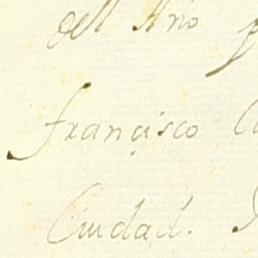 dell Año
Francisco
Ciudad.